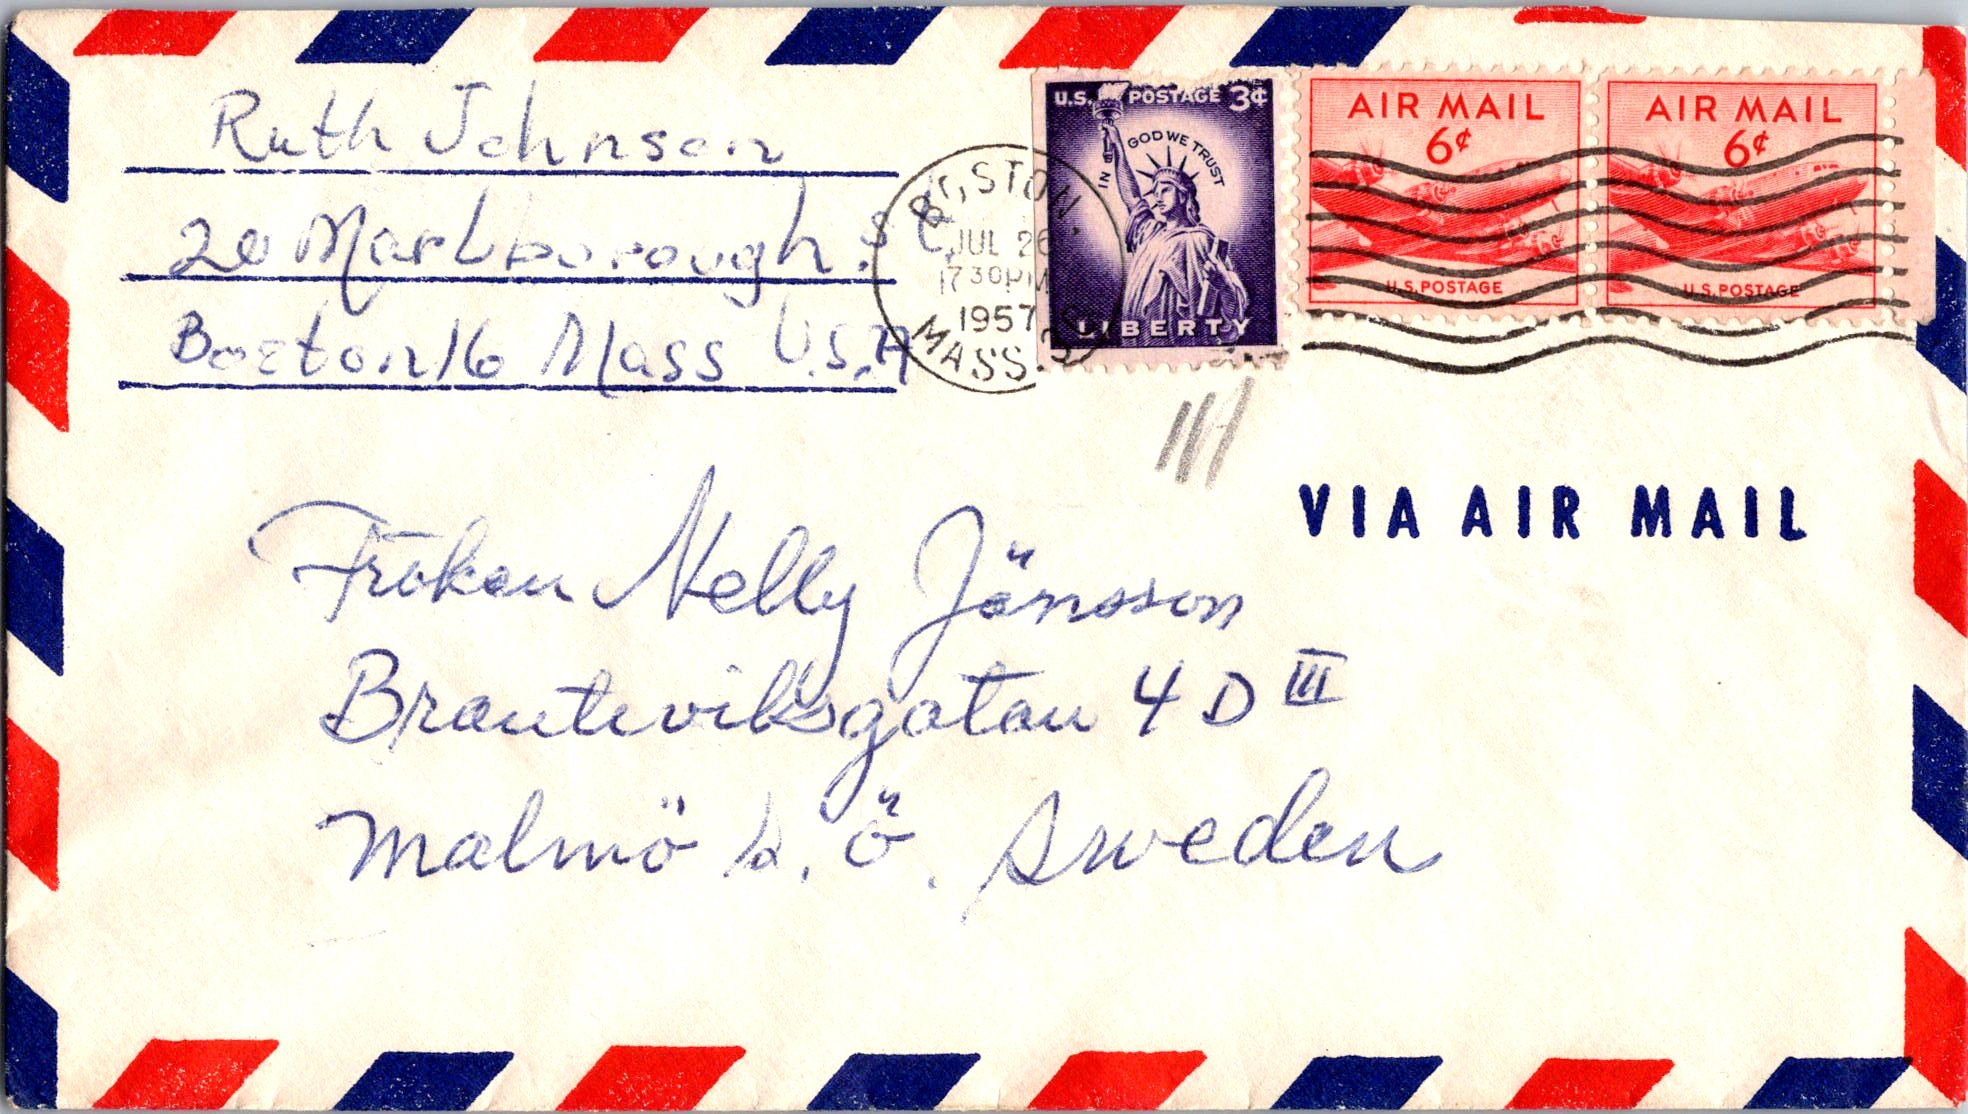 Ruth Johnson
20 Marlborough St.
Boston 16 Mass U.S.A
BOSTON,
JUL 26
730PM
1957
MASS.
U.S. POSTAGE 3¢
IN GOD WE TRUST
LIBERTY
AIR MAIL
6¢
U.S. POSTAGE
AIR MAIL
6¢
U.S. POSTAGE
VIA AIR MAIL
Fröken Nelly Jönsson
Branteviksgatan 4 D III
Malmö s. ö. Sweden